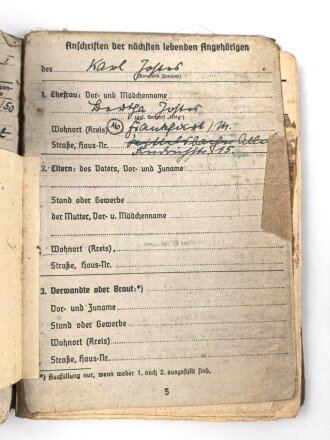 Anschriften der nächsten lebenden Angehörigen
des Karl Jostes
(Vor- und Zuname)
1. Ehefrau: Vor- und Mädchenname
Bertha Jostes
Wohnort (Kreis) (16) Frankfurt / M.
Straße, Haus-Nr. Allee
15
2. Eltern: des Vaters, Vor- und Zuname
Stand oder Gewerbe
der Mutter, Vor- u. Mädchenname
Wohnort (Kreis)
Straße, Haus-Nr.
3. Verwandte oder Braut:*)
Vor- und Zuname
Stand oder Gewerbe
Wohnort (Kreis)
Straße, Haus-Nr.
*) Ausfüllung nur, wenn weder 1. noch 2. ausgefüllt sind.
5